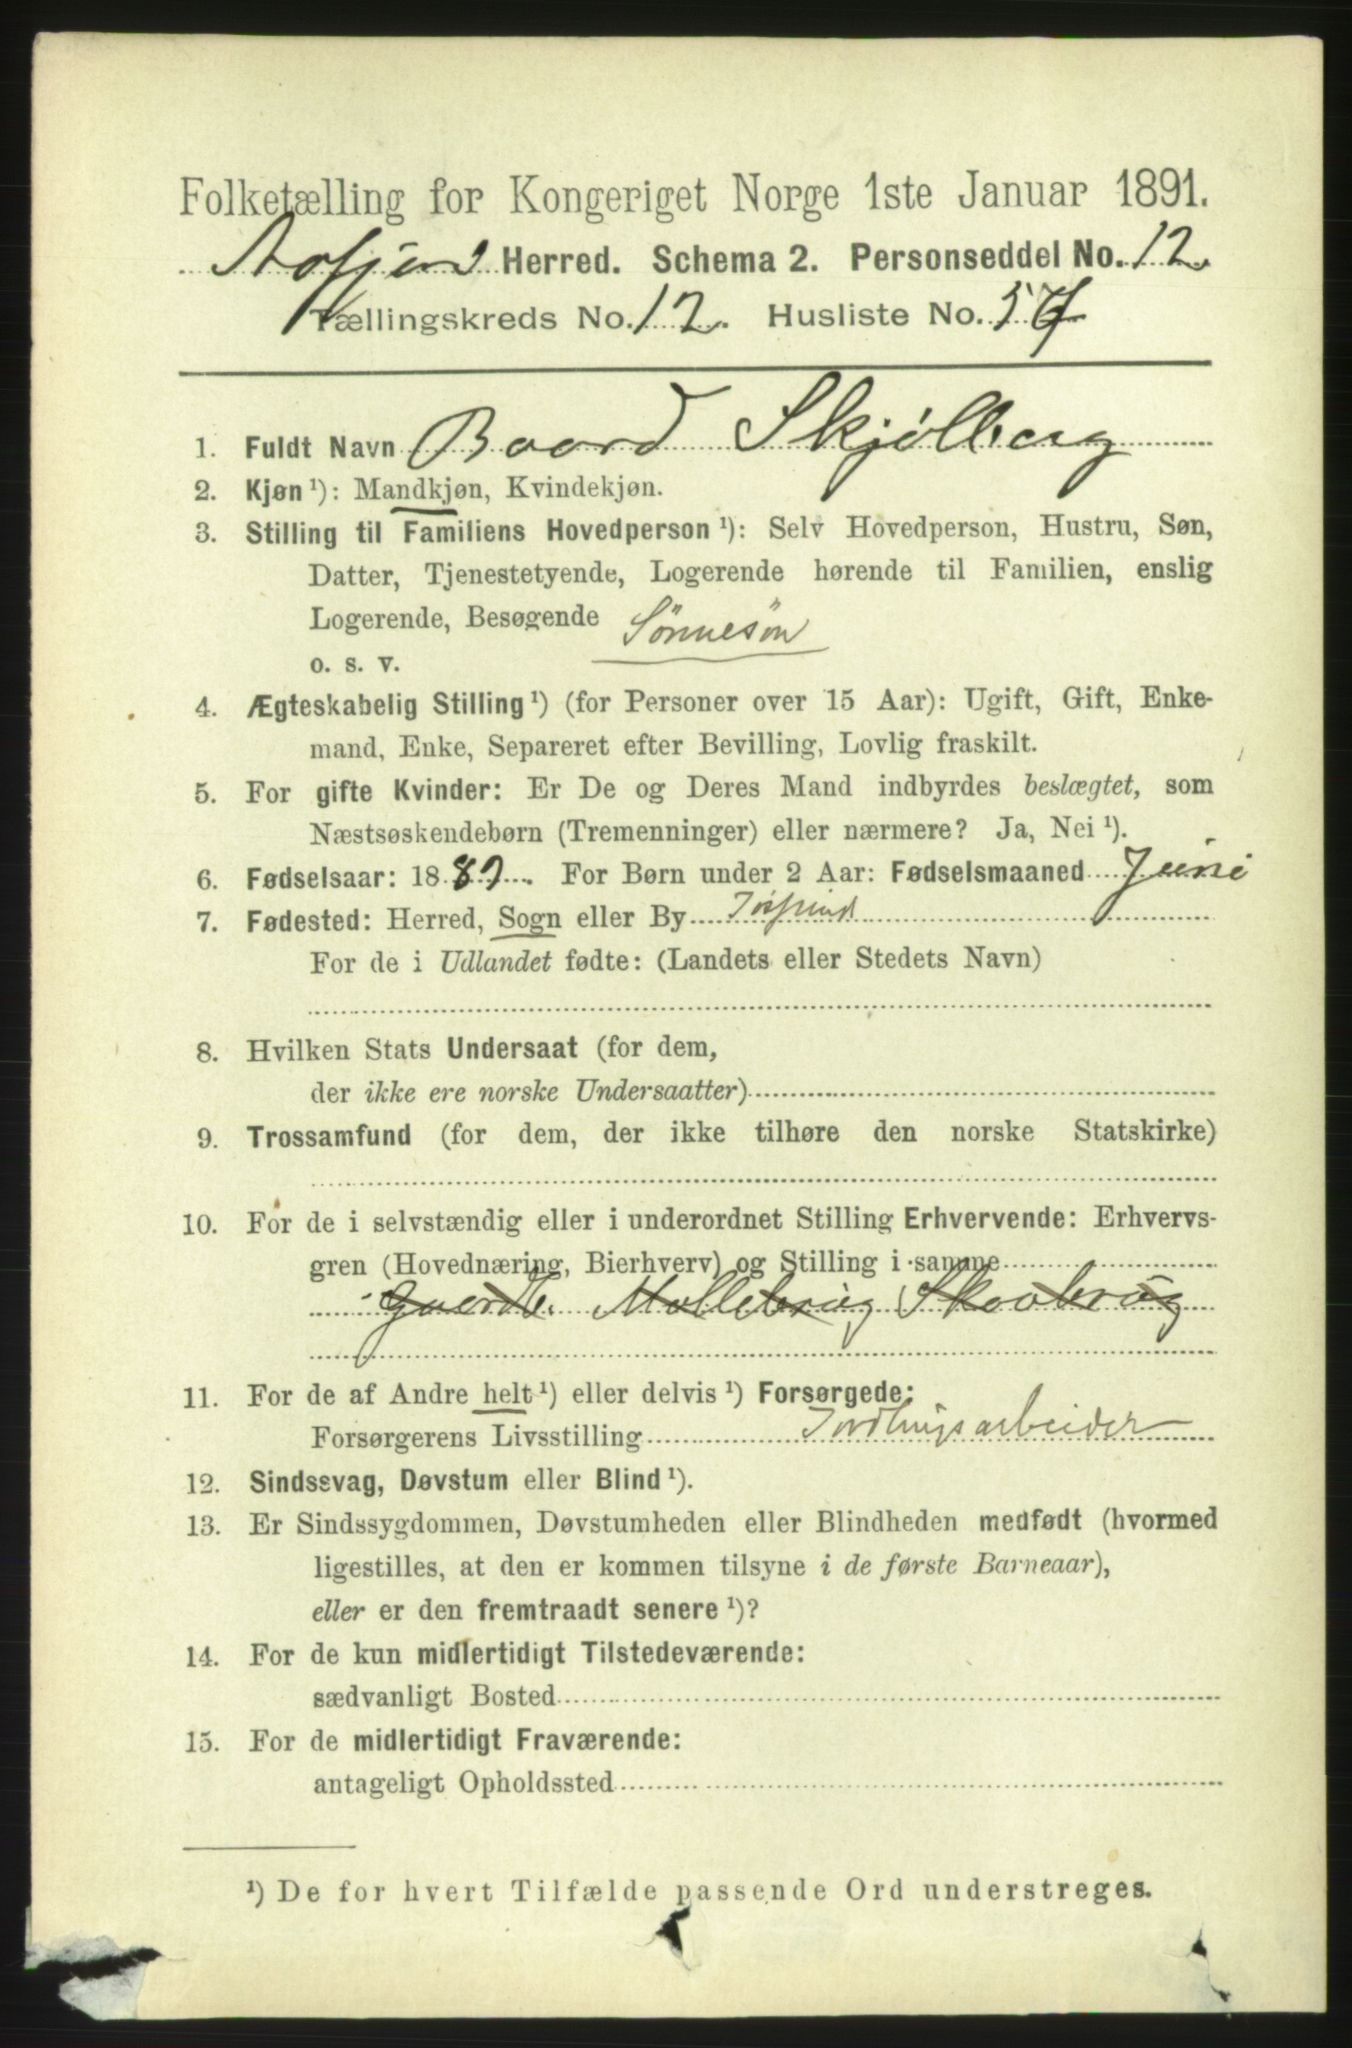 Folketælling for Kongeriget Norge 1ste Januar 1891.
Aafjord Herred. Schema 2. Personseddel No. 12.
Tællingskreds No. 12. Husliste No. 57
1. Fuldt Navn Baard Skjølberg
2. Kjøn ¹): Mandkjøn, Kvindekjøn.
3. Stilling til Familiens Hovedperson ¹): Selv Hovedperson, Hustru, Søn,
Datter, Tjenestetyende, Logerende hørende til Familien, enslig
Logerende, Besøgende Sönnesön
o. s. v.
4. Ægteskabelig Stilling ¹) (for Personer over 15 Aar): Ugift, Gift, Enke-
mand, Enke, Separeret efter Bevilling, Lovlig fraskilt.
5. For gifte Kvinder: Er De og Deres Mand indbyrdes beslægtet, som
Næstsøskendebørn (Tremenninger) eller nærmere? Ja, Nei ¹).
6. Fødselsaar: 1889. For Børn under 2 Aar: Fødselsmaaned Juni
7. Fødested: Herred, Sogn eller By
For de i Udlandet fødte: (Landets eller Stedets Navn)
8. Hvilken Stats Undersaat (for dem,
der ikke ere norske Undersaatter)
9. Trossamfund (for dem, der ikke tilhøre den norske Statskirke)
10. For de i selvstændig eller i underordnet Stilling Erhvervende: Erhvervs-
gren (Hovednæring, Bierhverv) og Stilling i samme
Gaardb. Møllebrug Skovbrug
11. For de af Andre helt ¹) eller delvis ¹) Forsørgede:
Forsørgerens Livsstilling
12. Sindssvag, Døvstum eller Blind ¹).
13. Er Sindssygdommen, Døvstumheden eller Blindheden medfødt (hvormed
ligestilles, at den er kommen tilsyne i de første Barneaar),
eller er den fremtraadt senere ¹)?
14. For de kun midlertidigt Tilstedeværende:
sædvanligt Bosted
15. For de midlertidigt Fraværende:
antageligt Opholdssted
¹) De for hvert Tilfælde passende Ord understreges.